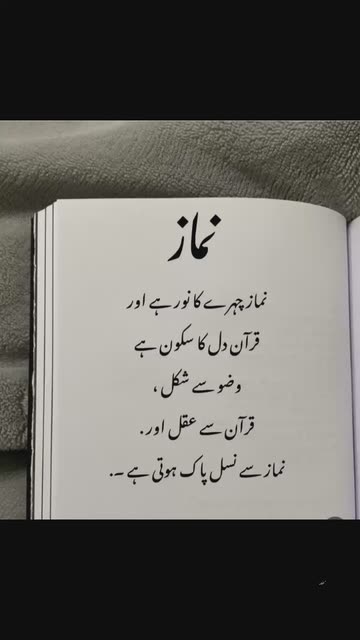 نماز
نماز چہرے کا نور ہے اور
قرآن دل کا سکون ہے
وضو سے شکل ،
قرآن سے عقل اور .
نماز سے نسل پاک ہوتی ہے ۔.